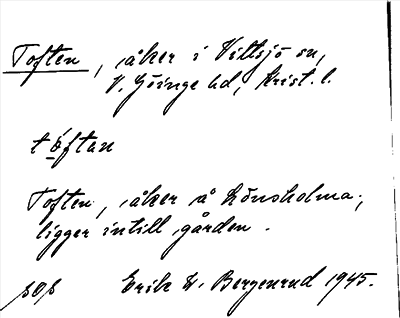 Toften, åker i Vittsjö sn,
V. Göinge hd, Krist. l.
töftan
Toften, åker å Lönsholma;
ligger intill gården.
Erik W. Bergenrud 1945.